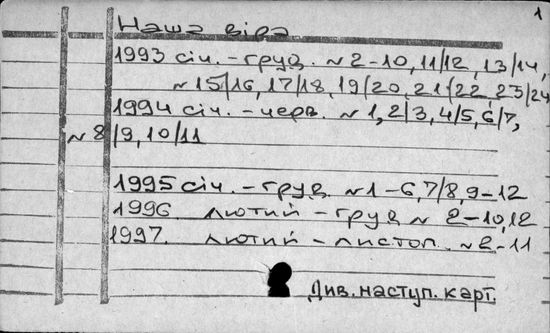 1
Наша віра
1993 січ. - груд. № 2-10, 11/12, 13/14,
№ 15/16, 17/18, 19/20, 21/22, 23/24
1994 січ. - черв. № 1, 2/3, 4/5, 6/7,
№ 8/9, 10/11
1995 січ. - груд. № 1-6, 7/8, 9-12
1996 лютий - груд № 2-10, 12
1997. лютий - листоп. № 2-11
Див. наступ. карт.